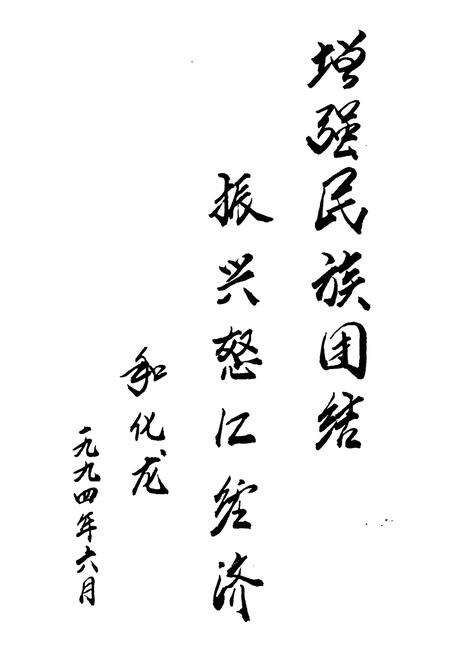 增强民族团结
振兴怒江经济
和化龙
一九九四年六月